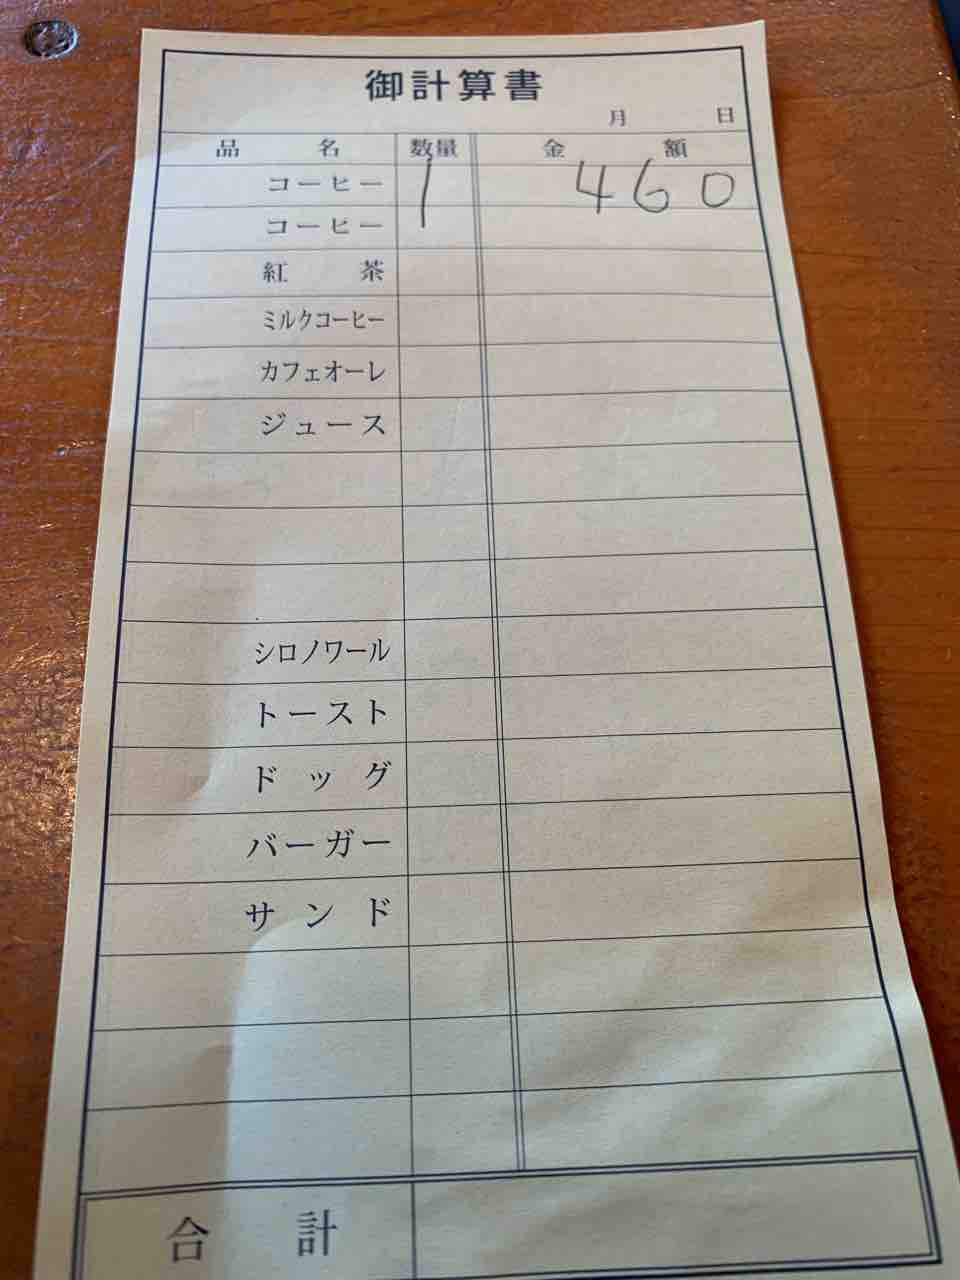 御計算書
月 日
品名 数量 金額
コーヒー 1 460
コーヒー
紅茶
ミルクコーヒー
カフェオーレ
ジュース
シロノワール
トースト
ドッグ
バーガー
サンド
合計